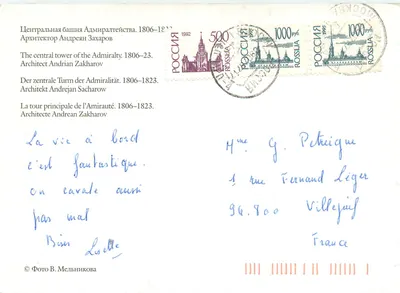 Центральная башня Адмиралтейства. 1806–1
Архитектор Андреян Захаров
The central tower of the Admiralty. 1806–23.
Architect Andrian Zakharov
Der zentrale Turm der Admiralität. 1806–1823.
Architekt Andrejan Sacharow
La tour principale de l'Amirauté. 1806–1823.
Architecte Andrean Zakharov
РОССИЯ
1992
500
ROSSIJA
РОССИЯ
1000
ROSSIJA
РОССИЯ
1000
ROSSIJA
La vie à bord
c'est fantastique.
on cavale aussi
pas mal
Bises
Mme G. Petreique
1 rue Fernand Léger
94.800 Villejuif
France
© Фото В. Мельникова